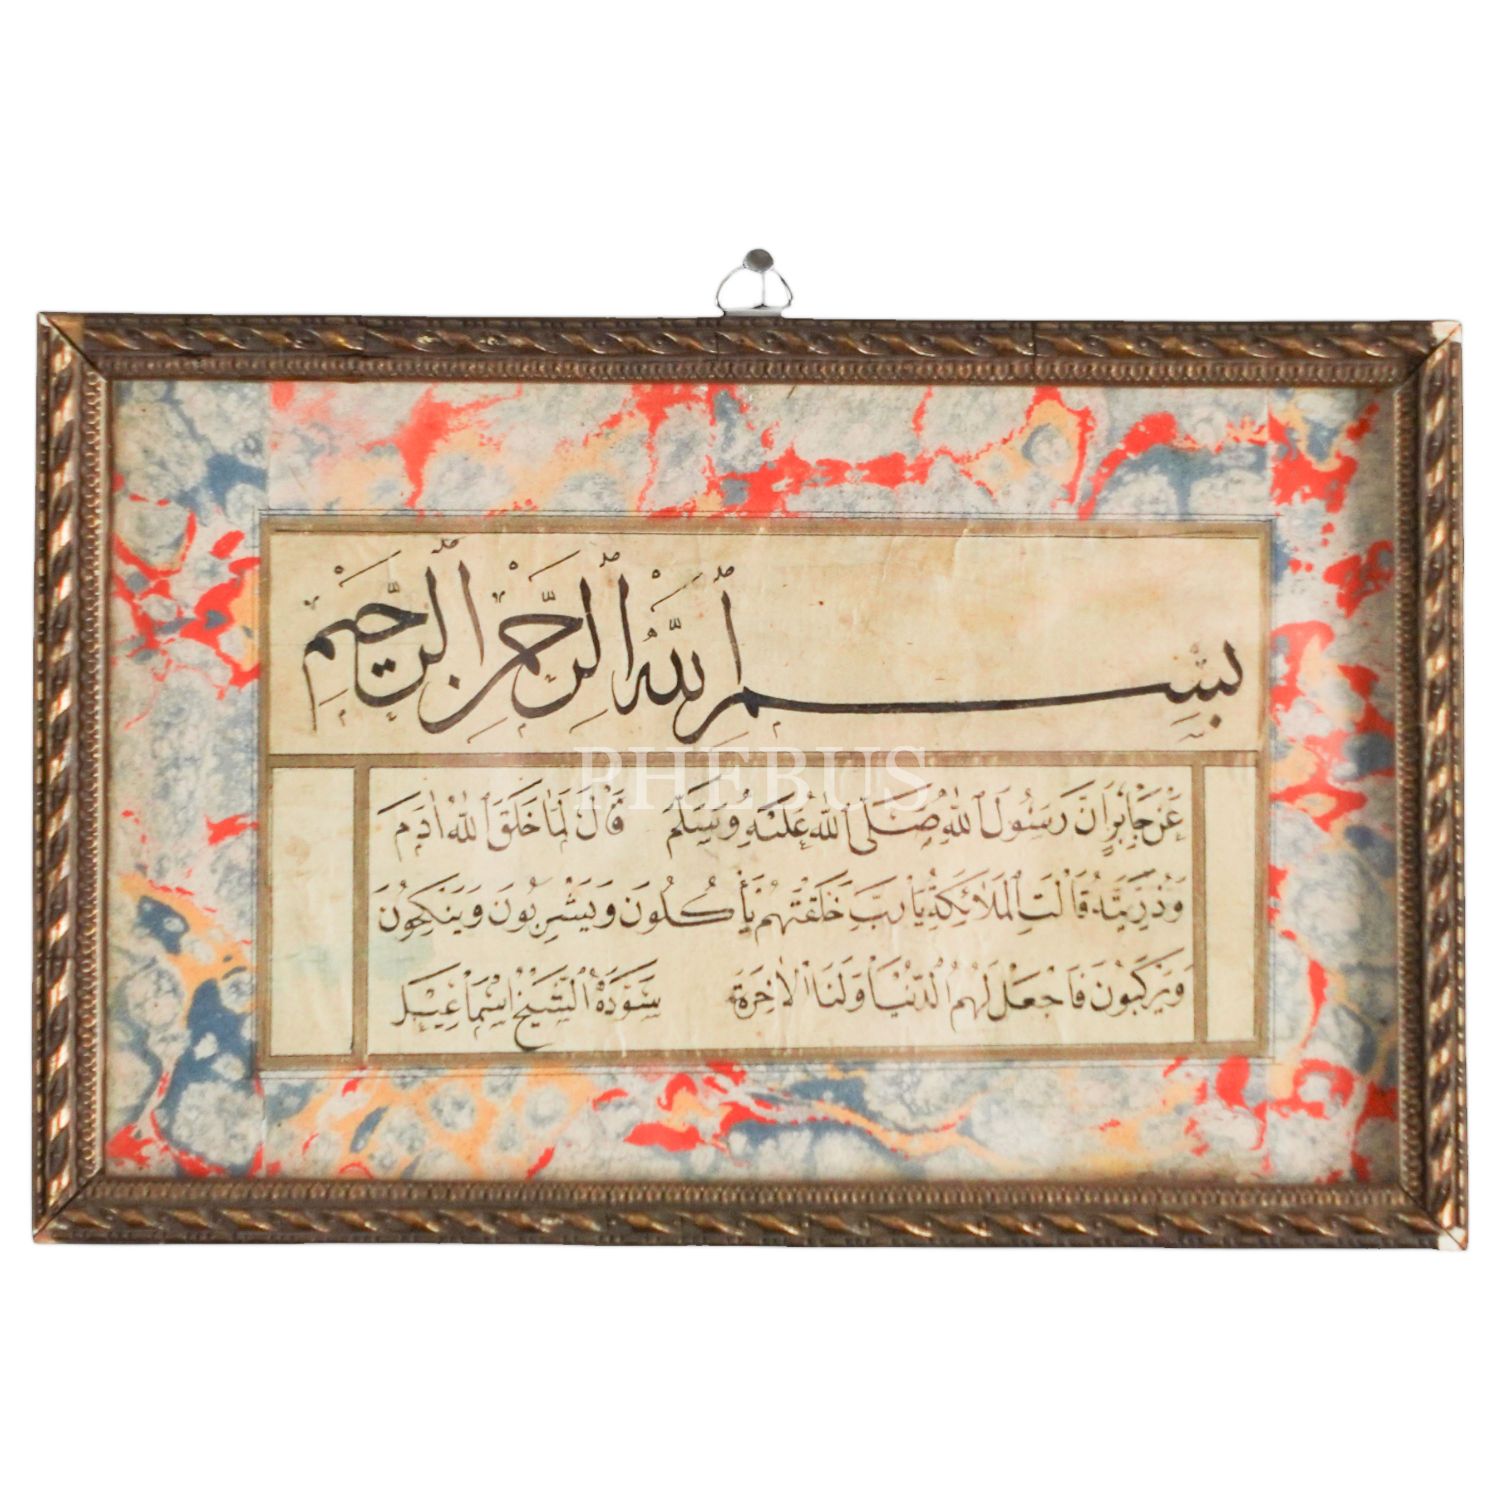 بِسْمِ ٱللَّهِ ٱلرَّحْمٰنِ ٱلرَّحِيمِ
PHEBUS
عَنْ جَابِرٍ اَنَّ رَسُولَ ٱللّٰهِ صَلَّى ٱللّٰهُ عَلَيْهِ وَسَلَّمَ قَالَ لَمَّا خَلَقَ ٱللّٰهُ اٰدَمَ
وَذُرِّيَّتَهُ قَالَتِ ٱلْمَلَائِكَةُ يَارَبِّ خَلَقْتَهُمْ يَأْكُلُونَ وَيَشْرَبُونَ وَيَنْكِحُونَ
وَيَرْكَبُونَ فَاجْعَلْ لَهُمُ ٱلدُّنْيَا وَلَنَا ٱلْاٰخِرَةَ سَوَّدَهُ ٱلشَّيْخُ اِسْمَاعِيلُ